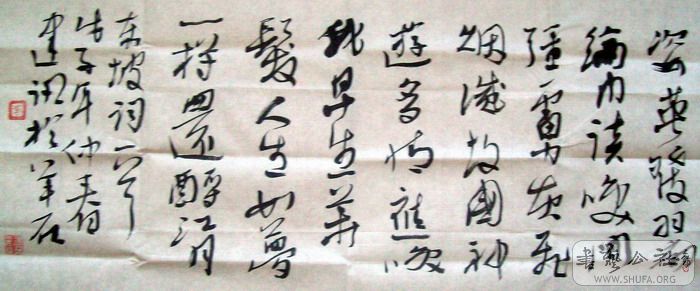 姿英發羽
綸巾談咲間
強虜灰飛
烟滅故國神
遊多情應咲
我早生華
髮人生如夢
一樽還酹江月
東坡詞一首
戊子年仲春
書藝公社
WWW.SHUFA.ORG